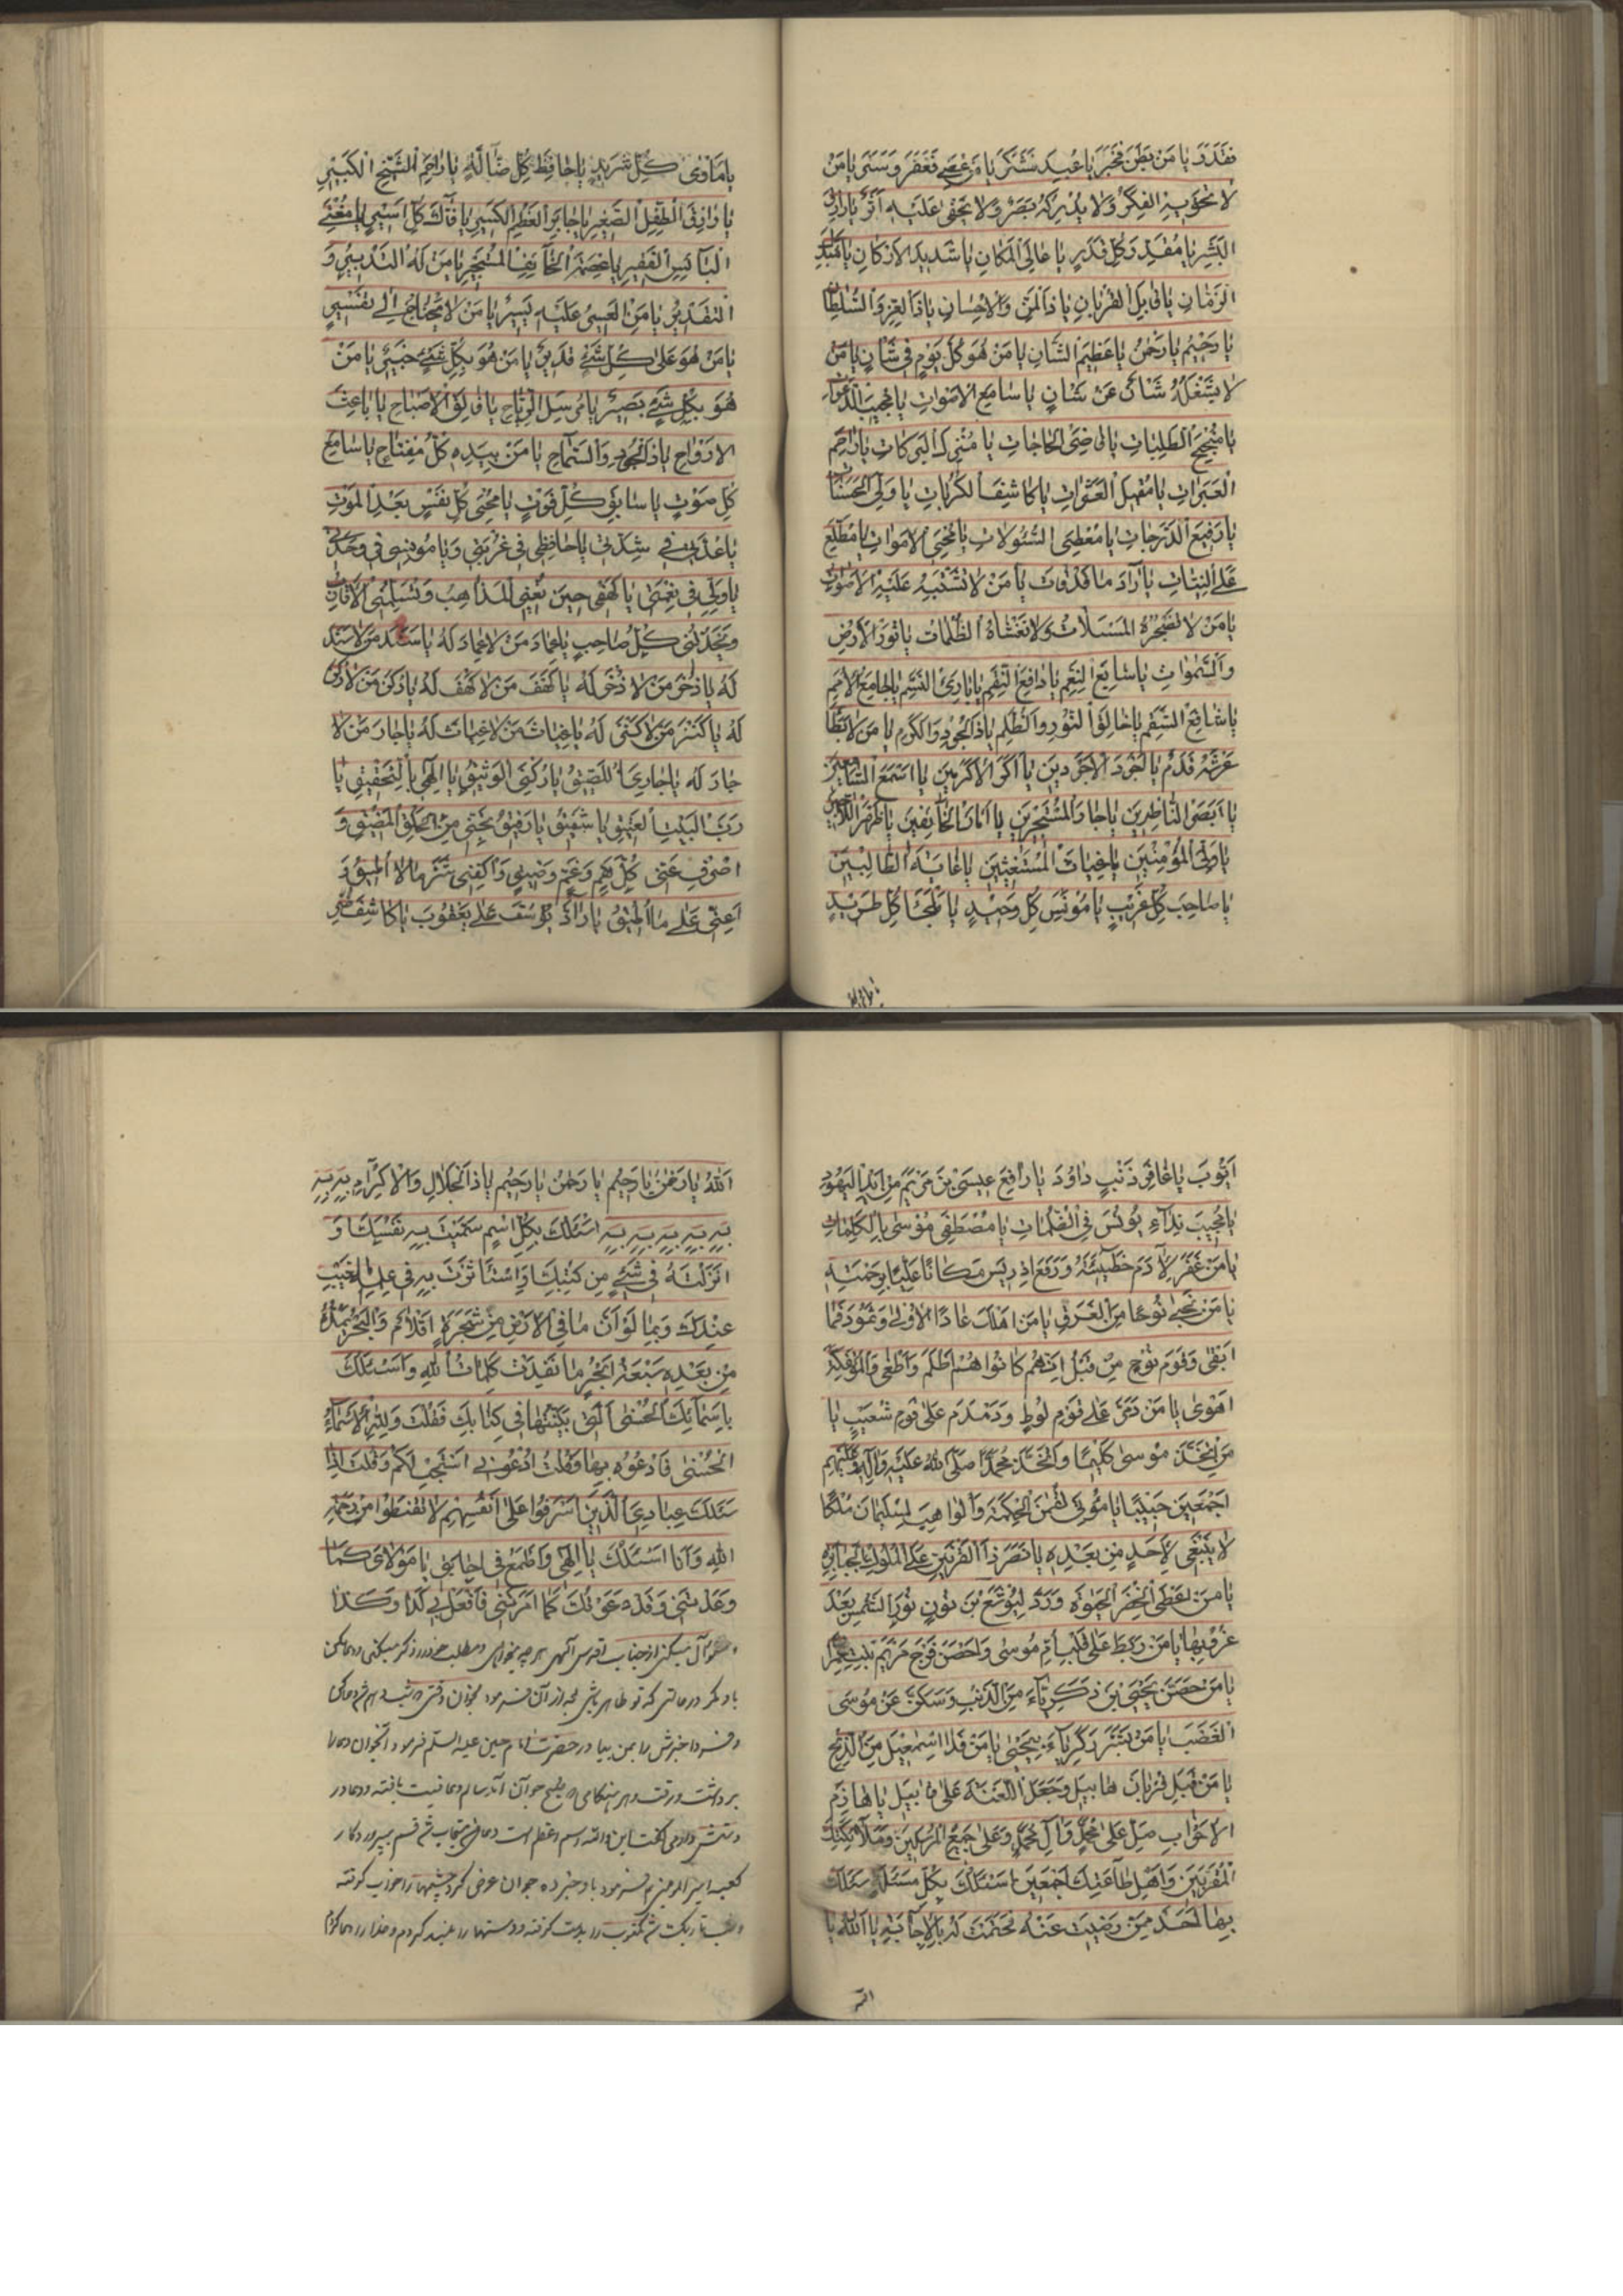 فَقَدَرَ يا مَنْ بَطَنَ فَخَبَرَ يا مَنْ عُبِدَ فَشَكَرَ يا مَنْ عُصِيَ فَغَفَرَ وَسَتَرَ يا مَنْ
لا تَحْوِيهِ الفِكَرُ وَلا يُدْرِكُهُ بَصَرٌ وَلا يَخْفى عَلَيْهِ اَثَرٌ يا رازِقَ
البَشَرِ يا مُقَدِّرَ كُلِّ قَدَرٍ يا عالِيَ المَكانِ يا شَدِيدَ الاَرْكانِ يا مُبَدِّلَ
الزَمانِ يا قابِلَ القُرْبانِ يا ذَا المَنِّ وَالاِحْسانِ يا ذَا العِزِّ وَالسُّلْطانِ
يا رَحِيمُ يا رَحْمنُ يا عَظِيمَ الشَّانِ يا مَنْ هُوَ كُلَّ يَوْمٍ فِي شَانٍ يا مَنْ
لا يَشْغَلُهُ شَانٌ عَنْ شَانٍ يا سامِعَ الاَصْواتِ يا مُجِيبَ الدَّعَواتِ
يا مُنْجِحَ الطَلِباتِ يا قاضِيَ الحاجاتِ يا مُنْزِلَ البَرَكاتِ يا راحِمَ
العَبَراتِ يا مُقِيلَ العَثَراتِ يا كاشِفَ الكُرُباتِ يا وَلِيَّ الحَسَناتِ
يا رَفِيعَ الدَّرَجاتِ يا مُعْطِيَ السُّئُولاتِ يا مُحْيِيَ الاَمْواتِ يا مُطَّلِعُ
عَلَى النِيّاتِ يا رادَّ ما قَدْ فاتَ يا مَنْ لا تَشْتَبِهُ عَلَيْهِ الاَصْواتُ
يا مَنْ لا تُضْجِرُهُ المَسْئَلاتُ وَلا تَغْشاهُ الظُّلُماتُ يا نُورَ الاَرْضِ
وَالسَّمواتِ يا سابِغَ النِعَمِ يا دافِعَ النِقَمِ يا بارِئَ النَّسَمِ يا جامِعَ الاُمَمِ
يا شافِيَ السَّقَمِ يا خالِقَ النُّورِ وَالظُّلَمِ يا ذَا الجُودِ وَالكَرَمِ يا مَنْ لا يَطَأُ
عَرْشَهُ قَدَمٌ يا اَجْوَدَ الاَجْوَدِينَ يا اَكْرَمَ الاَكْرَمِينَ يا اَسْمَعَ السّامِعِينَ
يا اَبْصَرَ النّاظِرِينَ يا جارَ المُسْتَجِيرِينَ يا اَمانَ الخائِفِينَ يا ظَهْرَ اللّاجِينَ
يا وَلِيَّ المُؤْمِنِينَ يا غِياثَ المُسْتَغِيثِينَ يا غايَةَ الطّالِبِينَ
يا صاحِبَ كُلِّ غَرِيبٍ يا مُونِسَ كُلِّ وَحِيدٍ يا مَلْجَأَ كُلِّ طَرِيدٍ
يا ماوى
يا مَاْوى كُلِّ شَرِيدٍ يا حافِظَ كُلِّ ضالَّةٍ يا راحِمَ الشَّيْخِ الكَبِيرِ
يا رازِقَ الطِّفْلِ الصَّغِيرِ يا جابِرَ العَظْمِ الكَسِيرِ يا فاكَّ كُلِّ اَسِيرٍ يا مُغْنِيَ
البائِسِ الفَقِيرِ يا عِصْمَةَ الخائِفِ المُسْتَجِيرِ يا مَنْ لَهُ التَّدْبِيرُ وَ
التَقْدِيرُ يا مَنِ العَسِيرُ عَلَيْهِ يَسِيرٌ يا مَنْ لا يَحْتاجُ اِلى تَفْسِيرٍ
يا مَنْ هُوَ عَلى كُلِّ شَيْءٍ قَدِيرٌ يا مَنْ هُوَ بِكُلِّ شَيْءٍ خَبِيرٌ يا مَنْ
هُوَ بِكُلِّ شَيْءٍ بَصِيرٌ يا مُرْسِلَ الرِّياحِ يا فالِقَ الاِصْباحِ يا باعِثَ
الاَرْواحِ يا ذَا الجُودِ وَالسَّماحِ يا مَنْ بِيَدِهِ كُلُّ مِفْتاحٍ يا سامِعَ
كُلِّ صَوْتٍ يا سابِقَ كُلِّ فَوْتٍ يا مُحْيِيَ كُلِّ نَفْسٍ بَعْدَ المَوْتِ
يا عُدَّتِي فِي شِدَّتِي يا حافِظِي فِي غُرْبَتِي وَيا مُونِسِي فِي وَحْدَتِي
يا وَلِيِّي فِي نِعْمَتِي يا كَهْفِي حِينَ تُعْيِينِي المَذاهِبُ وَتُسَلِّمُنِي الاَقارِبُ
وَيَخْذُلُنِي كُلُّ صاحِبٍ يا عِمادَ مَنْ لا عِمادَ لَهُ يا سَنَدَ مَنْ لا سَنَدَ
لَهُ يا ذُخْرَ مَنْ لا ذُخْرَ لَهُ يا كَهْفَ مَنْ لا كَهْفَ لَهُ يا رُكْنَ مَنْ لا رُكْنَ
لَهُ يا كَنْزَ مَنْ لا كَنْزَ لَهُ يا غِياثَ مَنْ لا غِياثَ لَهُ يا جارَ مَنْ لا
جارَ لَهُ يا جارِيَ اللَّصِيقَ يا رُكْنِيَ الوَثِيقَ يا اِلهِي بِالتَّحْقِيقِ يا
رَبَّ البَيْتِ العَتِيقِ يا شَفِيقُ يا رَفِيقُ نَجِّنِي مِنْ حَلَقِ المَضِيقِ وَ
اصْرِفْ عَنِّي كُلَّ هَمٍّ وَغَمٍّ وَضِيقٍ وَاكْفِنِي شَرَّ ما لا اُطِيقُ وَ
اَعِنِّي عَلى ما اُطِيقُ يا رادَّ يُوسُفَ عَلى يَعْقُوبَ يا كاشِفَ ضُرِّ
اَيُّوبَ يا غافِرَ ذَنْبِ داوُدَ يا رافِعَ عِيسَى بْنَ مَرْيَمَ مِنْ اَيْدِي اليَهُودِ
يا مُجِيبَ نِداءِ يُونُسَ فِي الظُّلُماتِ يا مُصْطَفِيَ مُوسى بِالكَلِماتِ
يا مَنْ غَفَرَ لِآدَمَ خَطِيئَتَهُ وَرَفَعَ اِدْرِيسَ مَكانًا عَلِيًّا بِرَحْمَتِهِ
يا مَنْ نَجّى نُوحًا مِنَ الغَرَقِ يا مَنْ اَهْلَكَ عادًا الاُولى وَثَمُودَ فَما
اَبْقى وَقَوْمَ نُوحٍ مِنْ قَبْلُ اِنَّهُمْ كانُوا هُمْ اَظْلَمَ وَاَطْغى وَالمُؤْتَفِكَةَ
اَهْوى يا مَنْ دَمَّرَ عَلى قَوْمِ لُوطٍ وَدَمْدَمَ عَلى قَوْمِ شُعَيْبٍ يا
مَنِ اتَّخَذَ مُوسى كَلِيمًا وَاتَّخَذَ مُحَمَّدًا صَلَّى اللهُ عَلَيْهِ وَآلِهِ وَعَلَيْهِمْ
اَجْمَعِينَ حَبِيبًا يا مُؤْتِيَ لُقْمنَ الحِكْمَةَ وَالواهِبَ لِسُلَيْمانَ مُلْكًا
لا يَنْبَغِي لِاَحَدٍ مِنْ بَعْدِهِ يا مَنْ نَصَرَ ذَا القَرْنَيْنِ عَلَى المُلُوكِ الجَبابِرَةِ
يا مَنْ اَعْطَى الخِضْرَ الحَيوةَ وَرَدَّ لِيُوشَعَ بْنِ نُونٍ نُورَ الشَّمْسِ بَعْدَ
غُرُوبِها يا مَنْ رَبَطَ عَلى قَلْبِ اُمِّ مُوسى وَاَحْصَنَ فَرْجَ مَرْيَمَ بِنْتِ عِمْرانَ
يا مَنْ حَصَّنَ يَحْيَى بْنَ زَكَرِيّاءَ مِنَ الذَنْبِ وَسَكَّنَ عَنْ مُوسَى
الغَضَبَ يا مَنْ بَشَّرَ زَكَرِيّاءَ بِيَحْيى يا مَنْ فَدا اِسْمعِيلَ مِنَ الذِّبْحِ
يا مَنْ قَبِلَ قُرْبانَ هابِيلَ وَجَعَلَ اللَّعْنَةَ عَلى قابِيلَ يا هازِمَ
الاَحْزابِ صَلِّ عَلى مُحَمَّدٍ وَآلِ مُحَمَّدٍ وَعَلى جَمِيعِ المُرْسَلِينَ وَمَلائِكَتِكَ
المُقَرَّبِينَ وَاَهْلِ طاعَتِكَ اَجْمَعِينَ اَسْئَلُكَ بِكُلِّ مَسْئَلَةٍ سَئَلَكَ
بِها اَحَدٌ مِمَّنْ رَضِيتَ عَنْهُ فَحَتَمْتَ لَهُ بِالاِجابَةِ يا اَللهُ يا
الله
اَللهُ يا رَحْمنُ يا رَحِيمُ يا رَحْمنُ يا رَحِيمُ يا ذَا الجَلالِ وَالاِكْرامِ بِهِ بِهِ
بِهِ بِهِ بِهِ بِهِ بِهِ اَسْئَلُكَ بِكُلِّ اسْمٍ سَمَّيْتَ بِهِ نَفْسَكَ وَ
اَنْزَلْتَهُ فِي شَيْءٍ مِنْ كُتُبِكَ وَاسْتَأْثَرْتَ بِهِ فِي عِلْمِ الغَيْبِ
عِنْدَكَ وَبِما لَوْ اَنَّ ما فِي الاَرْضِ مِنْ شَجَرَةٍ اَقْلامٌ وَالبَحْرُ يَمُدُّهُ
مِنْ بَعْدِهِ سَبْعَةُ اَبْحُرٍ ما نَفِدَتْ كَلِماتُ اللهِ وَاَسْئَلُكَ
بِاَسْمائِكَ الحُسْنَى الَّتِي بَيَّنْتَها فِي كِتابِكَ فَقُلْتَ وَلِلّهِ الاَسْماءُ
الحُسْنى فَادْعُوهُ بِها وَقُلْتَ ادْعُونِي اَسْتَجِبْ لَكُمْ وَقُلْتَ اِذا
سَئَلَكَ عِبادِيَ الَّذِينَ اَسْرَفُوا عَلى اَنْفُسِهِمْ لا تَقْنَطُوا مِنْ رَحْمَةِ
اللهِ وَاَنا اَسْئَلُكَ يا اِلهِي وَاَطْمَعُ فِي اِجابَتِي يا مَوْلايَ كَما
وَعَدْتَنِي وَقَدْ دَعَوْتُكَ كَما اَمَرْتَنِي فَافْعَلْ بِي كَذا وَكَذا
وسؤال میکنی از جناب اقدس الهی هرچه میخواهی و مطلب خود را ذکر میکنی و دعا مکن
باو مگر در حالتی که تو طاهر باشی بعد از آن فرمود بخوان وقتی که شب دهم شود دعا کن
وفردا خبرش را بمن بیاور حضرت امام حسین علیه السلم فرمود انجوان دعا را
برداشت ورفت وهر هنگامی که صبح جوان آمد سالم وعافیت یافته ودعا در
دستش ومی گفت این والله اسم اعظم است دعای من مستجاب شد قسم بپروردگار
کعبه امیر المؤمنین فرمود باو خبر ده جوان عرض کرد چشمها را خواب گرفته
وشب تاریک شد مکتوب را بدست گرفته ودستها را بلند کردم وخدا را دعا کردم